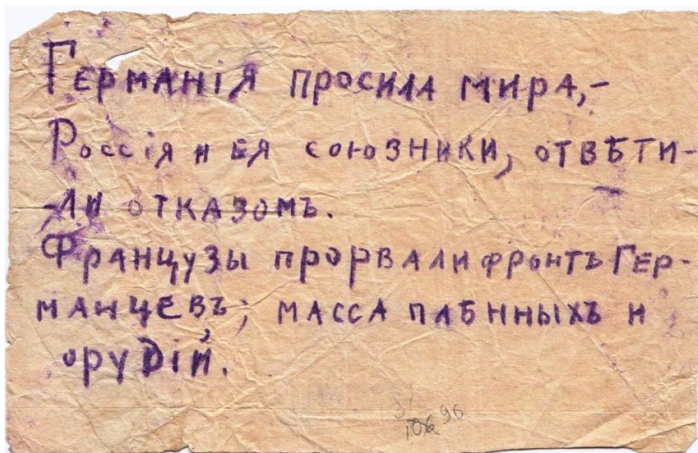 Германія просила мира,-
Россія и ея союзники, отвѣти-
-ли отказомъ.
Французы прорвали фронтъ Гер-
манцевъ; масса пабнныхъ и
орудій.